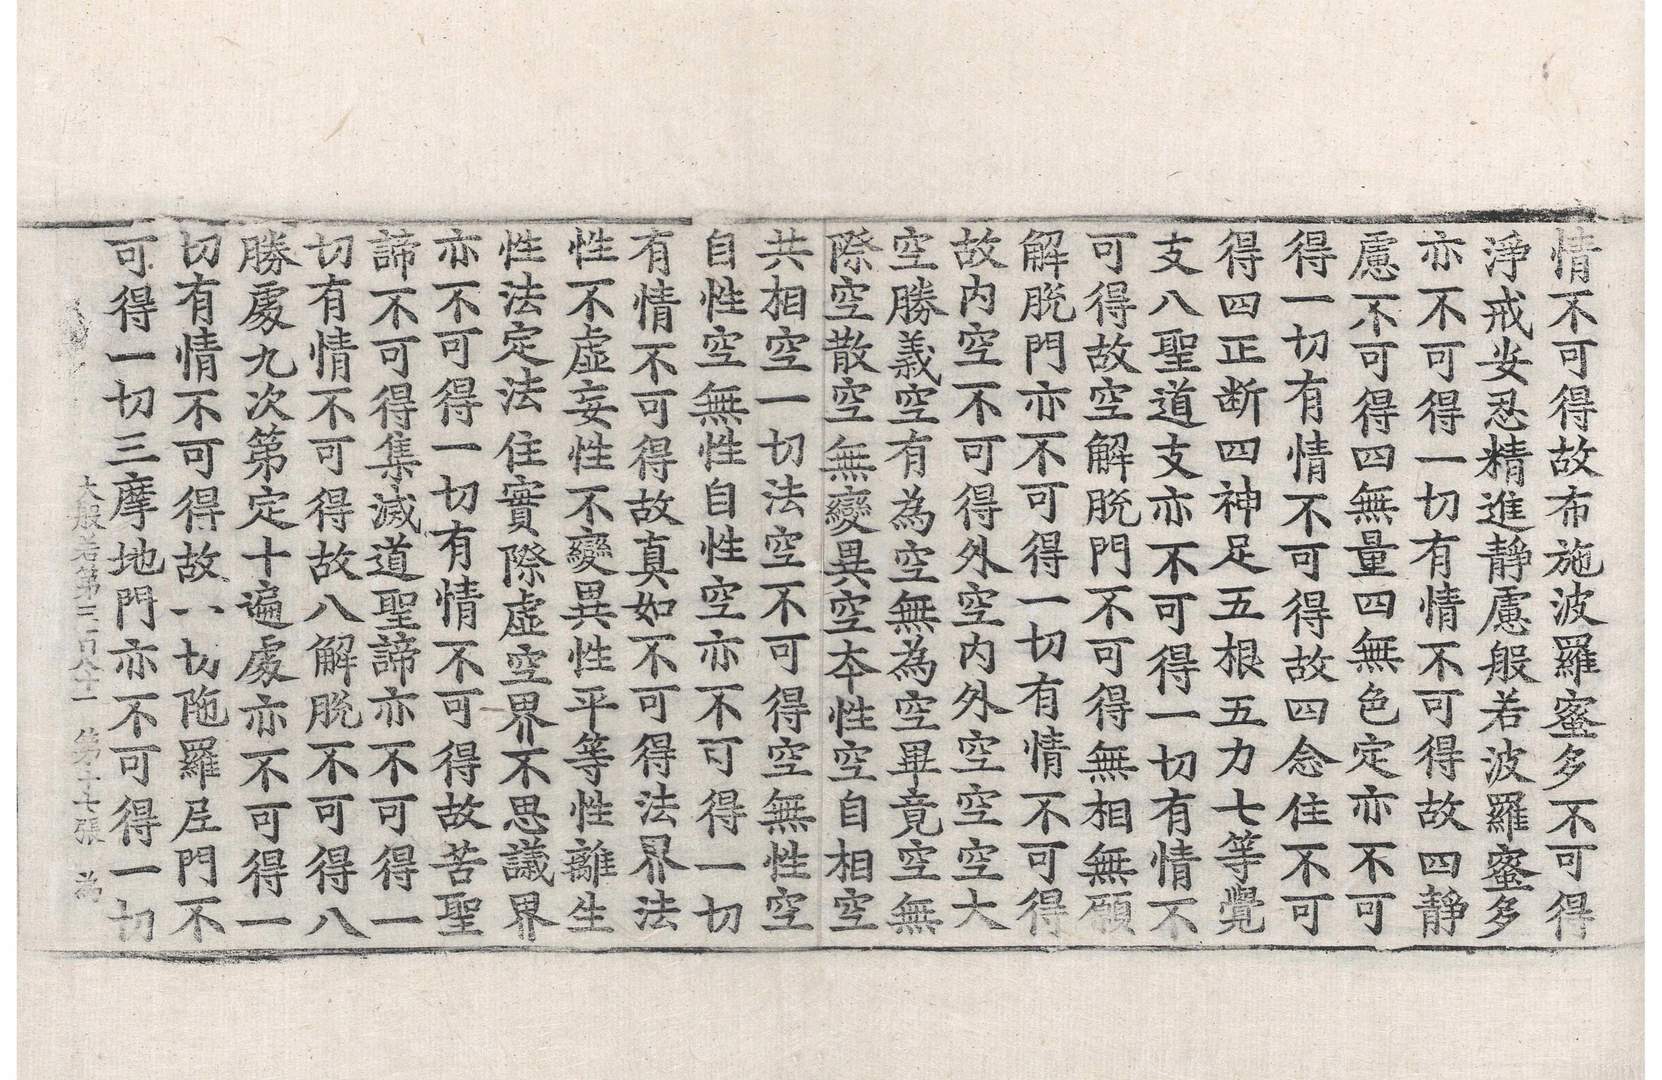 情不可得故布施波羅蜜多不可得
淨戒安忍精進靜慮般若波羅蜜多
亦不可得一切有情不可得故四靜
慮不可得四無量四無色定亦不可
得一切有情不可得故四念住不可
得四正断四神足五根五力七等覺
支八聖道支亦不可得一切有情不
可得故空解脫門不可得無相無願
解脫門亦不可得一切有情不可得
故内空不可得外空内外空空空大
空勝義空有為空無為空畢竟空無
際空散空無變異空本性空自相空
共相空一切法空不可得空無性空
自性空無性自性空亦不可得一切
有情不可得故真如不可得法界法
性不虛妄性不變異性平等性離生
性法定法住實際虛空界不思議界
亦不可得一切有情不可得故苦聖
諦不可得集滅道聖諦亦不可得一
切有情不可得故八解脫不可得八
勝處九次第定十遍處亦不可得一
切有情不可得故一切陁羅尼門不
可得一切三摩地門亦不可得一切
大般若第三百六十一 第十七張 為